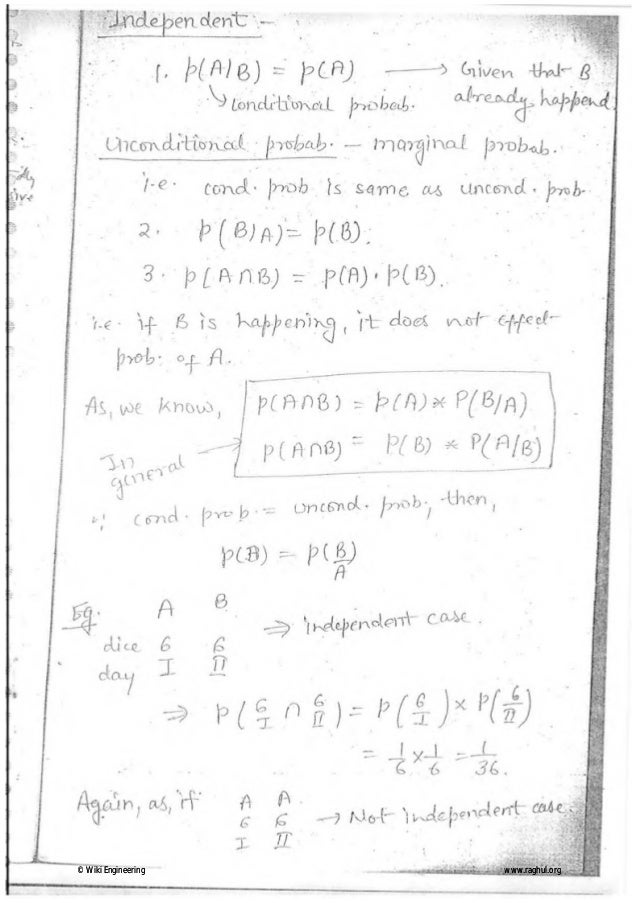 Independent -
1. p(A/B) = p(A) → Given that B
already happend.
↳ conditional probab.
Unconditional probab. - marginal probab.
i.e. cond. prob is same as uncond. prob.
2. p(B/A) = p(B).
3. p(A∩B) = p(A).p(B).
i.e. if B is happening, it does not effect
prob. of A.
As, we know, p(A∩B) = p(A) * P(B/A)
In general → p(A∩B) = p(B) * P(A/B)
∵ cond. prob. = uncond. prob., then,
p(B) = p(B/A)
Eg. A B
⇒ independent case.
dice 6 6
day I II
⇒ p(6/I ∩ 6/II) = p(6/I) × p(6/II)
= 1/6 × 1/6 = 1/36.
Again, as, if A A
6 6 → Not independent case.
I II
© Wiki Engineering
www.raghul.org